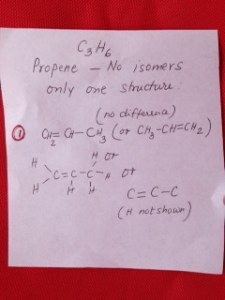 C3H6
Propene — No isomers
only one structure:
(no difference)
① CH2=CH-CH3 (or CH3-CH=CH2)
H H or
C=C-C-H or
H H H
C=C-C
(H not shown)